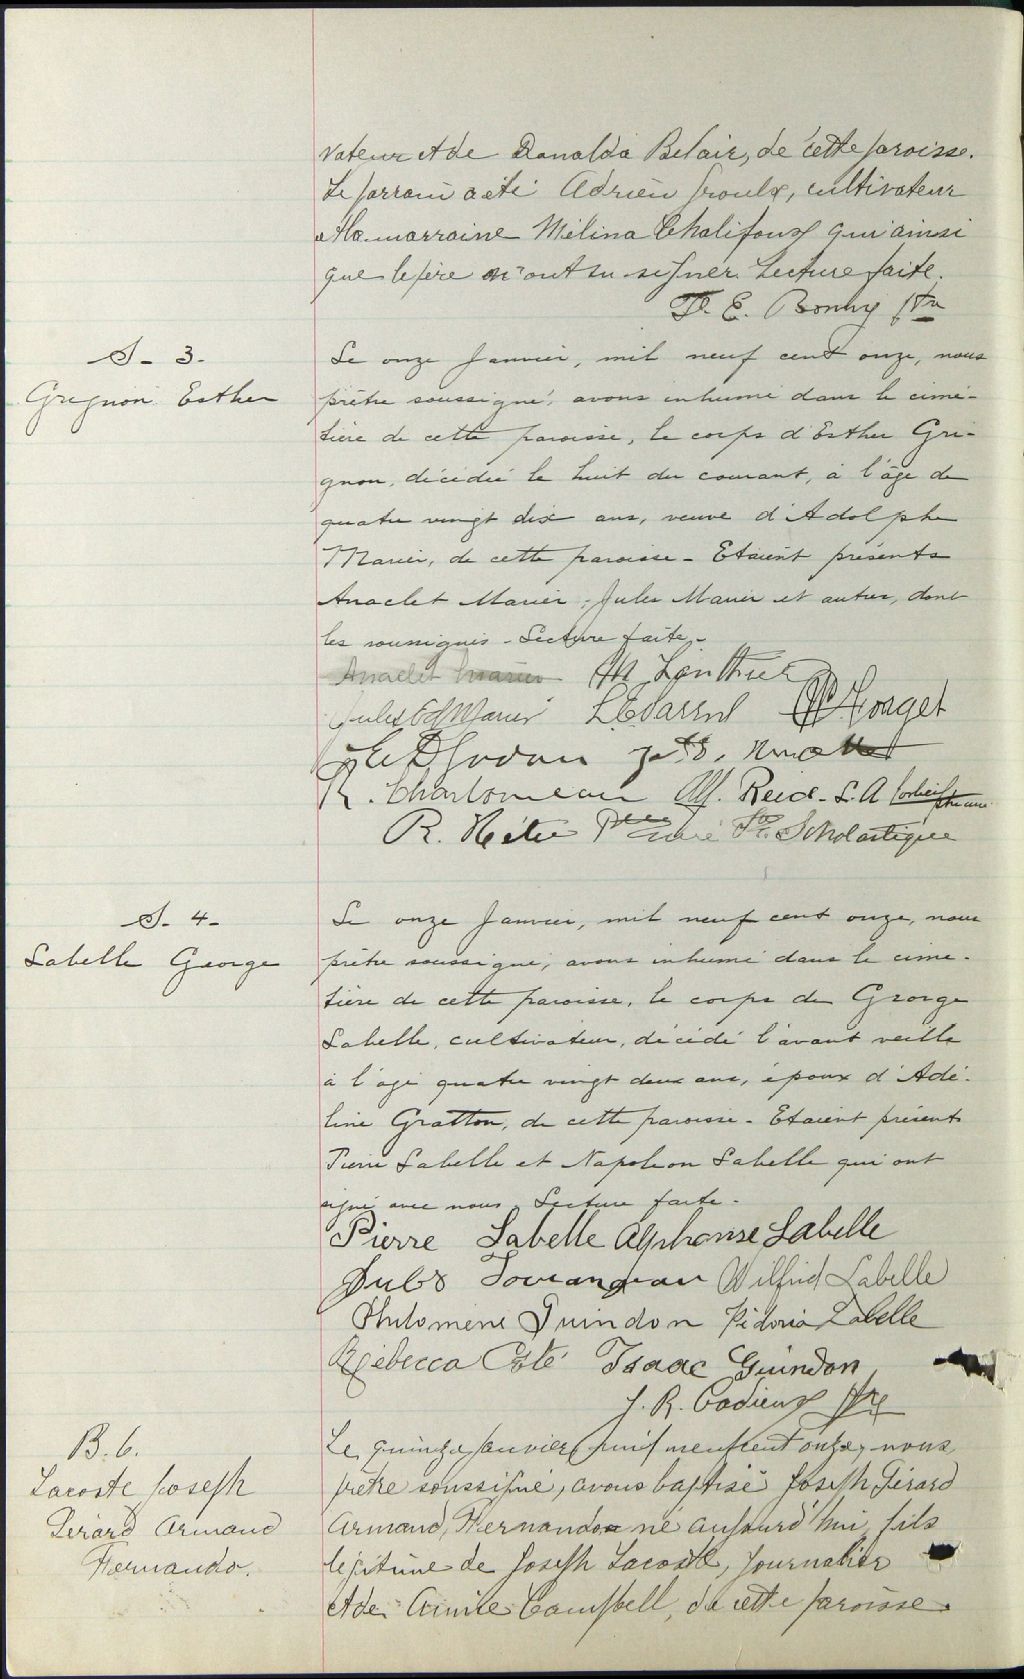 vateur et de Donalda Belair, de cette paroisse.
Le parrain a été Adrien Groulx, cultivateur
et la marraine Mélina Chalifoux qui ainsi
que le père n'ont su signer. Lecture faite.
E. Bonny Ptre
S - 3.
Grignon Esther
Le onze Janvier, mil neuf cent onze, nous
prêtre soussigné, avons inhumé dans le cime-
tière de cette paroisse, le corps d'Esther Gri-
gnon, décédée le huit du courant, à l'âge de
quatre vingt dix ans, veuve d'Adolphe
Marier, de cette paroisse - Etaient présents
Anaclet Marier, Jules Marier et autres, dont
les soussignés - Lecture faite -
Anaclet Marier M Lanthier
Jules Ed Marier Forget
R. Charbonneau Alf. Reid - L. A
R. Hétu Ptre curé Ste Scholastique
S - 4 -
Labelle George
Le onze Janvier, mil neuf cent onze, nous
prêtre soussigné, avons inhumé dans le cime-
tière de cette paroisse, le corps de George
Labelle, cultivateur, décédé l'avant veille
à l'age quatre vingt deux ans, époux d'Adé-
line Gratton, de cette paroisse - Etaient présents
Pierre Labelle et Napoléon Labelle qui ont
signé avec nous. Lecture faite -
Pierre Labelle Alphonse Labelle
Jules Tourangeau Wilfrid Labelle
Philomène Guindon Labelle
Rébecca Coté Isaac Guindon
J. R. Cadieux Ptre
B. 6.
Lacoste Joseph
Gérard Armand
Fernando.
Le quinze Janvier, mil neuf cent onze, nous,
prêtre soussigné, avons baptisé Joseph Gérard
Armand, Fernando né aujourd'hui, fils
légitime de Joseph Lacoste, journalier
et de Annie Campbell, de cette paroisse.